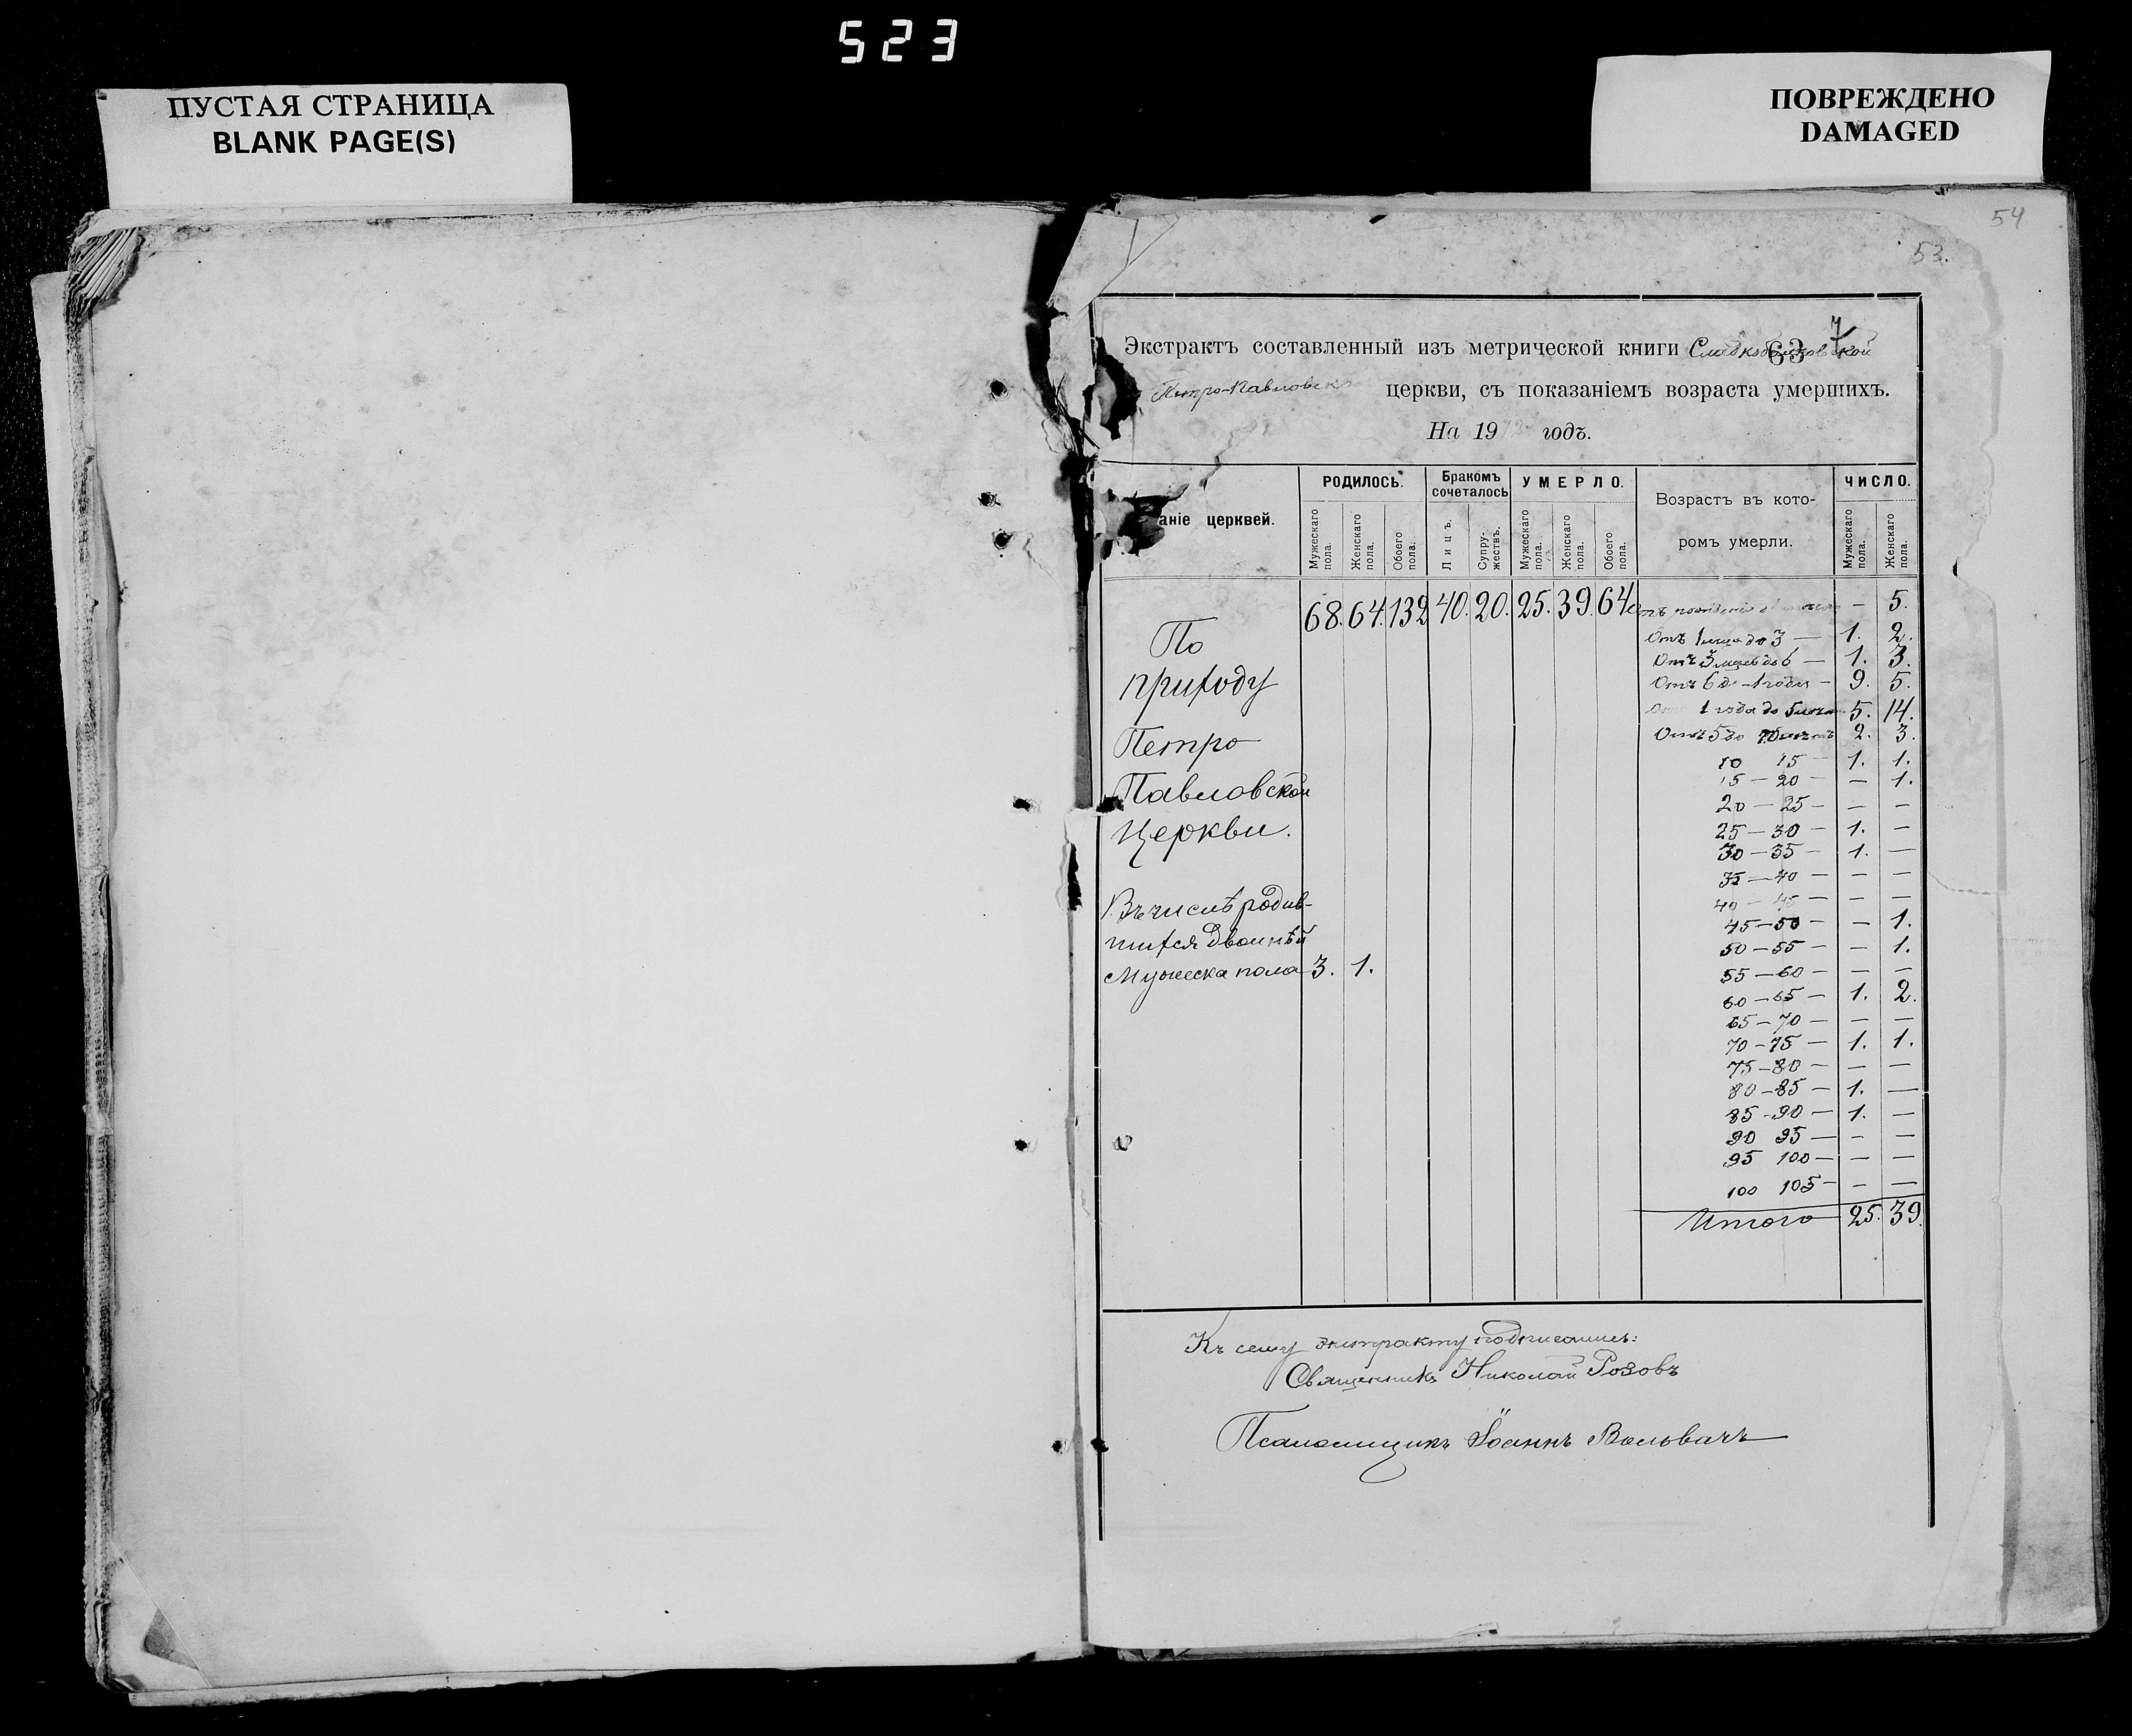 523
ПУСТАЯ СТРАНИЦА
BLANK PAGE(S)
ПОВРЕЖДЕНО
DAMAGED
54
53.
Экстрактъ составленный изъ метрической книги
637
Петро-Павловской церкви, съ показаніемъ возраста умершихъ.
На 19 годъ.
аніе церквей.
РОДИЛОСЬ.
Мужескаго пола.
Женскаго пола.
Обоего пола.
Бракомъ сочеталось
Лицъ.
Супружествъ.
УМЕРЛО.
Мужескаго пола.
Женскаго пола.
Обоего пола.
Возрастъ въ которомъ умерли.
ЧИСЛО.
Мужескаго пола.
Женскаго пола.
68. 64. 132 40. 20. 25. 39. 64
По
приходу
Петро
Павловской
Церкви.
Въ числѣ родив-
шихся двойнѣй
Мужеска пола 3. 1.
отъ рожденія до — 5.
Отъ 1 мца до 3 — 1. 2.
Отъ 3 мцевъ до 6 — 1. 3.
Отъ 6 до - 1 года - 9. 5.
1 года до 5 лѣтъ 5. 14.
Отъ 5 до 10 лѣтъ 2. 3.
10 15 — 1. 1.
15 — 20 — — 1.
20 — 25 — — —
25 — 30 — 1. —
30 — 35 — 1. —
35 — 40 — — —
40 — 45 — — —
45 — 50 — — 1.
50 — 55 — — 1.
55 — 60 — — —
60 — 65 — 1. 2.
65 — 70 — — —
70 — 75 — 1. 1.
75 — 80 — — —
80 — 85 — 1. —
85 — 90 — 1. —
90 95 — — —
95 100 — — —
100 105 — — —
Итого 25. 39.
Къ сему экстракту подписались:
Священникъ Николай Розовъ
Псаломщикъ Іоаннъ Вольвачъ